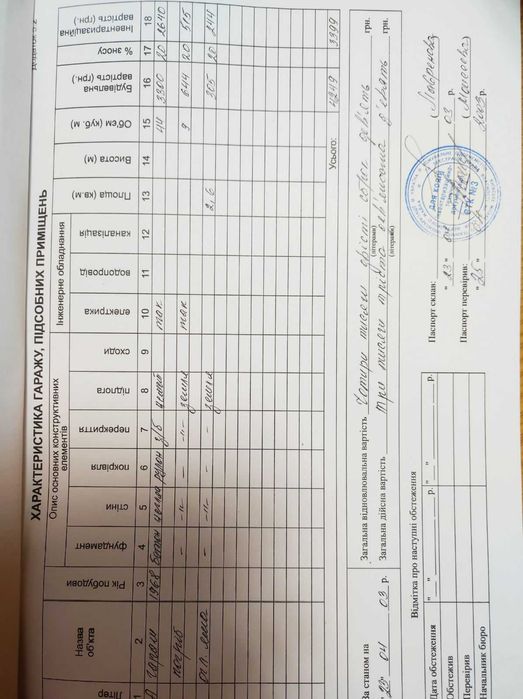 Додаток 5.2
ХАРАКТЕРИСТИКА ГАРАЖУ, ПІДСОБНИХ ПРИМІЩЕНЬ
Літер
Назва об'єкта
Рік побудови
Опис основних конструктивних елементів
фундамент
стіни
покрівля
перекриття
підлога
сходи
Інженерне обладнання
електрика
водопровід
каналізація
Площа (кв.м)
Висота (м)
Об'єм (куб. м)
Будівельна вартість (грн.)
% зносу
Інвентаризаційна вартість (грн.)
1 2 3 4 5 6 7 8 9 10 11 12 13 14 15 16 17 18
А гараж 1968 бетон цегла рулон з/б цемент так 44 3300 20 2640
погріб – –"– – –"– земля так 9 644 20 515
огл. яма – –"– – –"– земля 2,6 305 20 244
Усього: 4249 3399
За станом на
23 04 03 р.
Загальна відновлювальна вартість Чотири тисячі двісті сорок дев'ять грн.
(літерами)
Загальна дійсна вартість три тисячі триста дев'яносто дев'ять грн.
(літерами)
Відмітка про наступні обстеження
Дата обстеження "__"____р. "__"____р.
Обстежив
Перевірив
Начальник бюро
Паспорт склав:
"23" 04 03 р.
Паспорт перевірив:
"25" 04 2003 р.
ДЛЯ КОПІЙ
БТІ №3